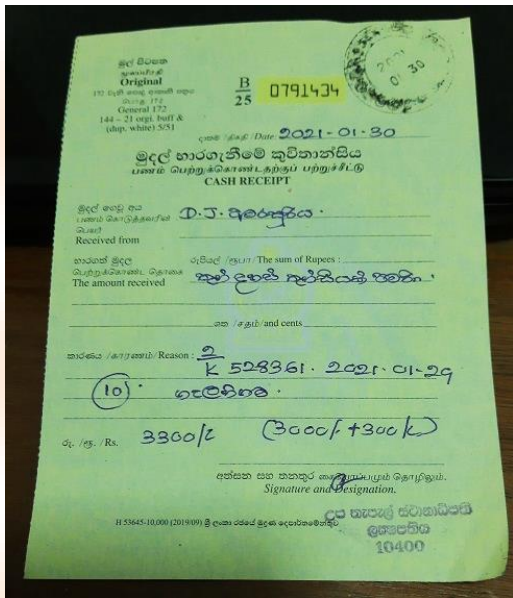 මුල් පිටපත
மூலப்பிரதி
Original
General 172
144 – 21 orgi. buff &
(dup. white) 5/51
B
25
0791434
2021
01 30
දිනය /திகதி /Date 2021-01-30
මුදල් භාරගැනීමේ කුවිතාන්සිය
பணம் பெற்றுக்கொண்டதற்குப் பற்றுச்சீட்டு
CASH RECEIPT
මුදල් ගෙවූ අය
பணம் கொடுத்தவரின்
பெயர்
Received from
D.J. අමරසූරිය.
භාරගත් මුදල
பெற்றுக்கொண்ட தொகை
The amount received
රුපියල් /ரூபா /The sum of Rupees :
තුන් දහස් තුන්සියක් පමණි.
ශත /சதம்/and cents
කාරණය /காரணம்/ Reason :
2
K 528361. 2021-01-29
10
රු. /ரூ. /Rs. 3300/= (3000/= +300/=)
අත්සන සහ තනතුර கையொப்பமும் தொழிலும்.
Signature and Designation.
H 53645-10,000 (2019/09) ශ්‍රී ලංකා රජයේ මුද්‍රණ දෙපාර්තමේන්තුව
උප තැපැල් ස්ථානාධිපති
10400